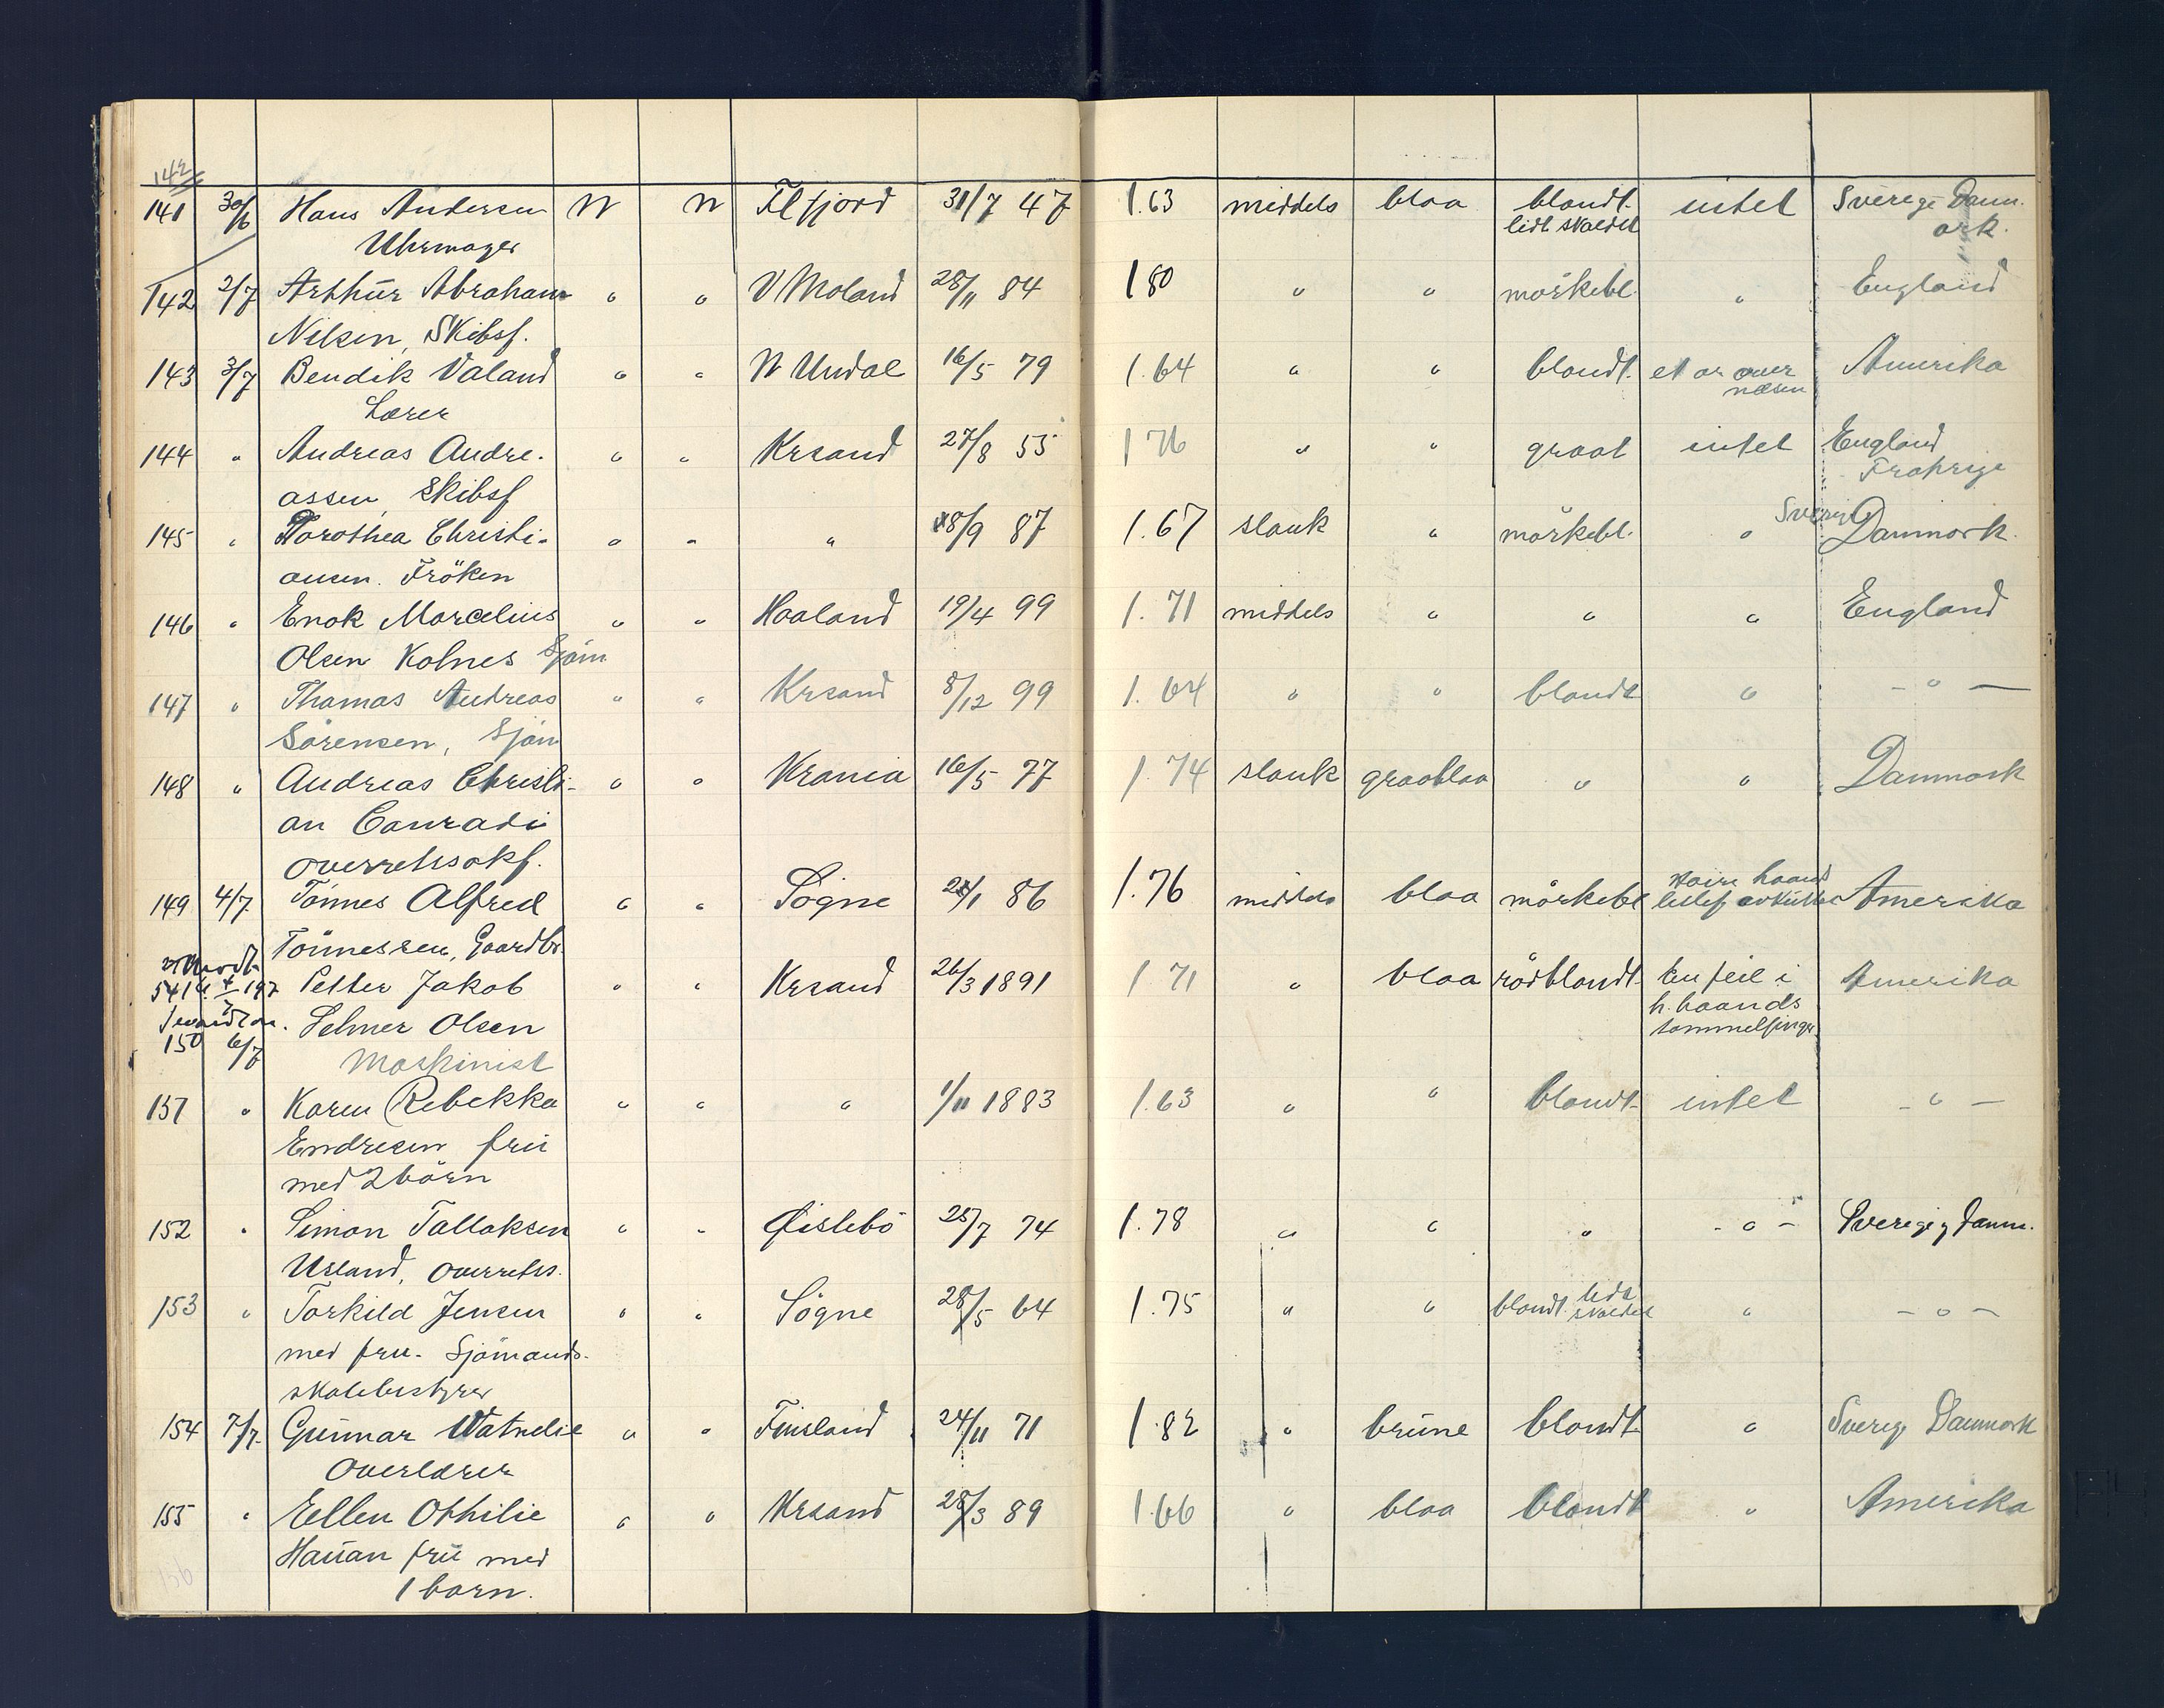 142
141 30/6 Hans Andersen N N Flfjord 31/7 47 1.63 middels blaa blondt. intet Sverige Danm.
Uhrmager lidt skaldet ark.
142 2/7 Arthur Abraham " " V Moland 28/11 84 1 80 " " mörkebl. " England
Nilsen, Skibsf.
143 3/7 Bendik Valand " " N Undal 16/5 79 1.64 " " blondt. et ar over Amerika
Lærer næsen
144 " Andreas Andre- " " Krsand 27/8 55 1 76 " " graat intet England
assen, Skibsf
145 " Dorothea Christi- " " " 18/9 87 1.67 slank " mörkebl. " Sverige Danmark
ansen. Fröken
146 " Enok Marcelius " " Haaland 19/4 99 1.71 middels " " " England
Olsen Kolnes Sjöm
147 " Thomas Andreas " " Krsand 8/12 99 1.64 " " blondt " - " -
Sörensen, Sjöm
148 " Andreas Christi- " " Krania 16/5 77 1.74 slank graablaa " " Danmark
an Conradi
overretssakf.
149 4/7 Tönnes Alfred " " Sögne 21/1 86 1.76 middels blaa mörkebl Amerika
Tönnessen, Gaardbr.
Petter Jakob " " Krsand 26/3 1891 1 71 " blaa rödblondt. en feil i Amerika
Selmer Olsen h. haands
150 6/7 Maskinist tommelfinger
151 " Karen Rebekka " " " 1/11 1883 1.63 " " blondt. intet - " -
Endresen frü
med 2 börn
152 " Simon Tallaksen " " Øislebö 25/7 74 1.78 " " " - " - Sverige g Danm.
Usland, overretss.
153 " Torkild Jensen " " Sögne 28/5 64 1.75 " " blondt. lidt skaldet " - " -
med fru. Sjömands-
skolebestyrer
154 7/7. Gunnar Watnelie " " Finsland 24/11 71 1.82 " brüne blondt " Sverig Danmark
Overlærer
155 " Eellen Othilie " " Krsand 28/3 89 1.66 " blaa blondt " Amerika
Hauan frü med
156 1 barn.